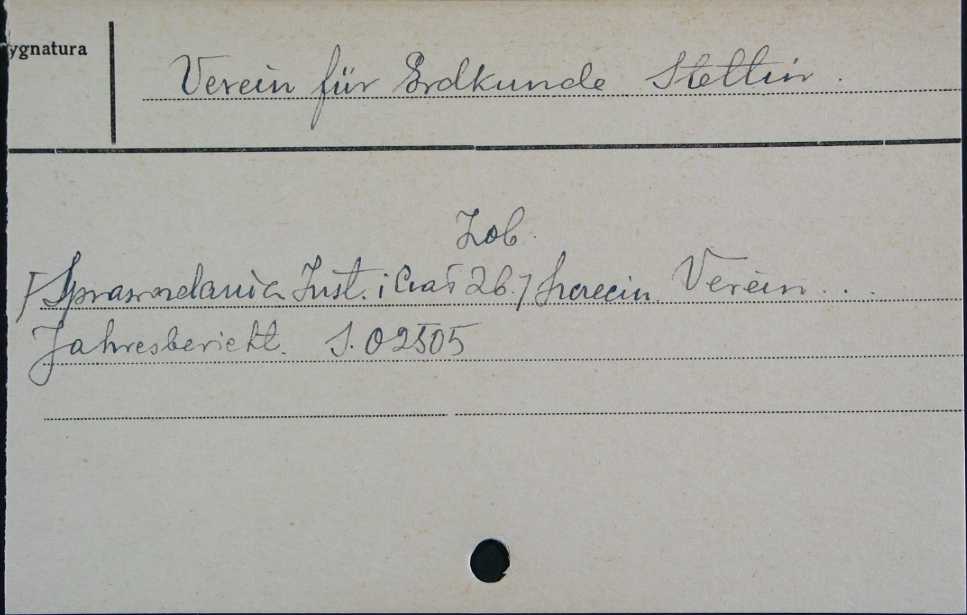 ygnatura
Verein für Erdkunde Stettin.
Zob.
[Sprawozdania Inst. i Czas 26.] Szczecin. Verein...
Jahresbericht. S. 02505